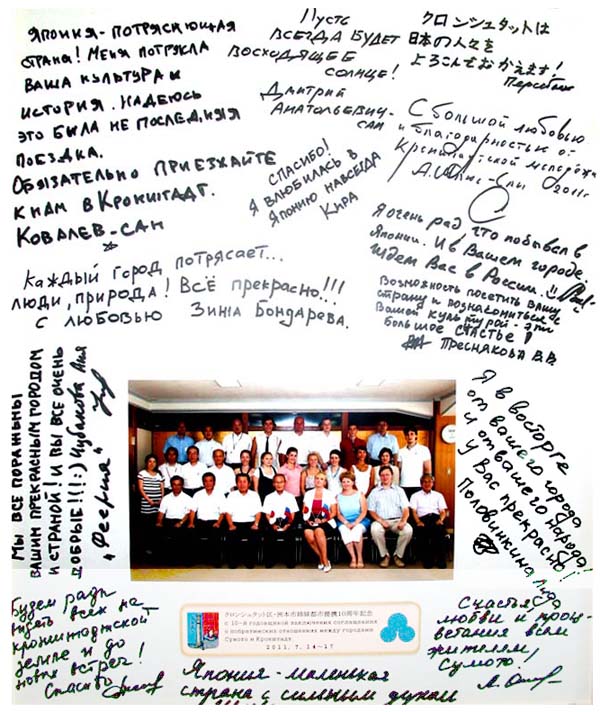 ЯПОНИЯ - ПОТРЯСАЮЩАЯ
СТРАНА! МЕНЯ ПОТРЯСЛА
ВАША КУЛЬТУРА И
ИСТОРИЯ. НАДЕЮСЬ
ЭТО БЫЛА НЕ ПОСЛЕДНЯЯ
ПОЕЗДКА.
ОБЯЗАТЕЛЬНО ПРИЕЗЖАЙТЕ
К НАМ В КРОНШТАДТ.
КОВАЛЕВ-САН
Пусть
ВСЕГДА БУДЕТ
ВОСХОДЯЩЕЕ
СОЛНЦЕ!
Дмитрий
Анатольевич-
САН
クロンシュタットは
日本の人々を
よろこんでおかえます!
СПАСИБО!
Я ВЛЮБИЛАСЬ В
ЯПОНИЮ НАВСЕГДА
КИРА
С большой любовью
и благодарностью от
Кронштадтской молодёжи
2011г
Я очень рад, что побывал в
Японии. И в Вашем городе.
Ждем Вас в России.
Возможность посетить Вашу
страну и познакомиться с
Вашей культурой - это
большое счастье!
Треснякова В.В.
Каждый город потрясает...
люди, природа! Всё прекрасно!!!
С любовью Зинa Бондарева.
Мы все поражены
вашим прекрасным городом
и страной! И вы все очень
добрые!!! :) Чубакова Аня
"Феерия"
Я в восторге
от вашего города
и от вашего народа!
У Вас прекрасно!
Половинкина Лида
Будем рады
видеть всех на
кронштадтской
земле и до
новых встреч!
Спасибо
クロンシュタット区・洲本市姉妹都市提携10周年記念
с 10-й годовщиной заключения соглашения
о побратимских отношениях между городами
Сумото и Кронштадт
2011. 7. 14~17
Счастья,
любви и проц-
ветания всем
жителям
Сумото!
Япония - маленькая
страна с сильным духом